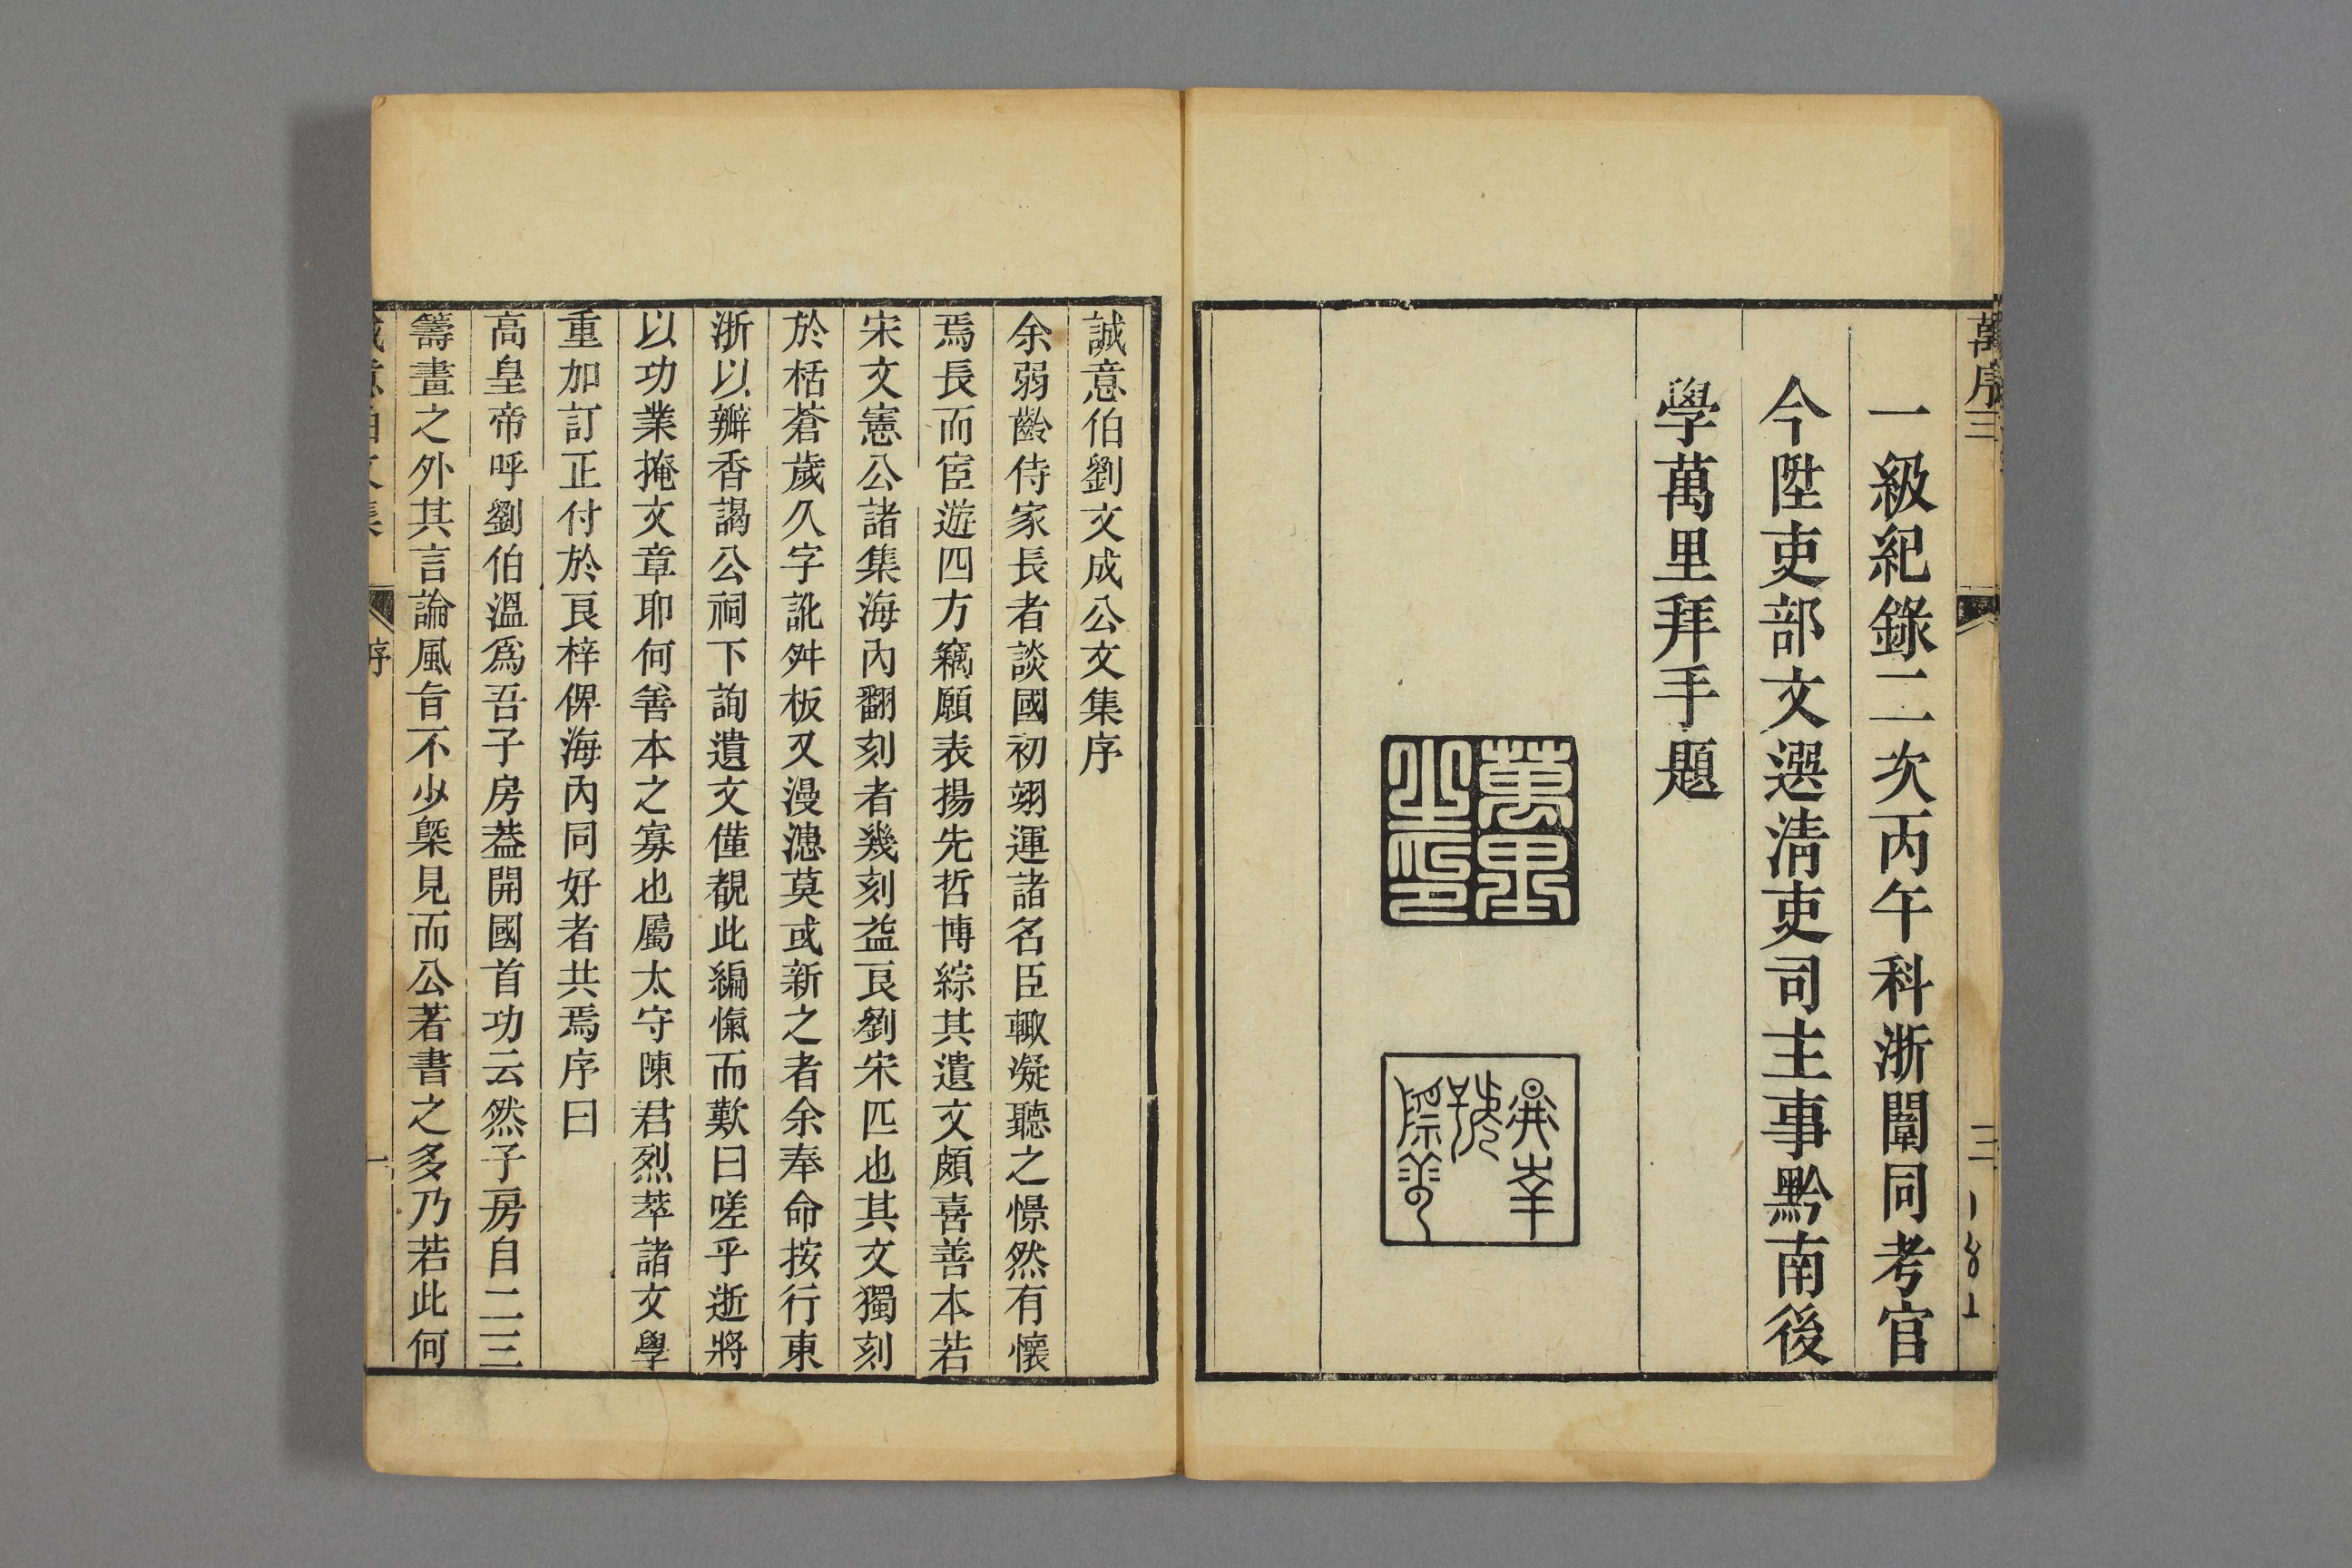 萬序三
三
一級紀錄二次丙午科浙闈同考官
今陞吏部文選清吏司主事黔南後
學萬里拜手題
萬里之印
誠意伯劉文成公文集序
余弱齡侍家長者談國初翊運諸名臣輙凝聽之憬然有懷
焉長而宦遊四方竊願表揚先哲博綜其遺文頗喜善本若
宋文憲公諸集海內翻刻者幾刻益良劉宋匹也其文獨刻
於栝蒼歲久字訛舛板又漫漶莫或新之者余奉命按行東
浙以瓣香謁公祠下詢遺文僅覩此編愾而歎曰嗟乎逝將
以功業掩文章耶何善本之寡也屬太守陳君烈萃諸文學
重加訂正付於良梓俾海內同好者共焉序曰
高皇帝呼劉伯溫爲吾子房葢開國首功云然子房自二三
籌畫之外其言論風旨不少槩見而公著書之多乃若此何
誠意伯文集
序
一